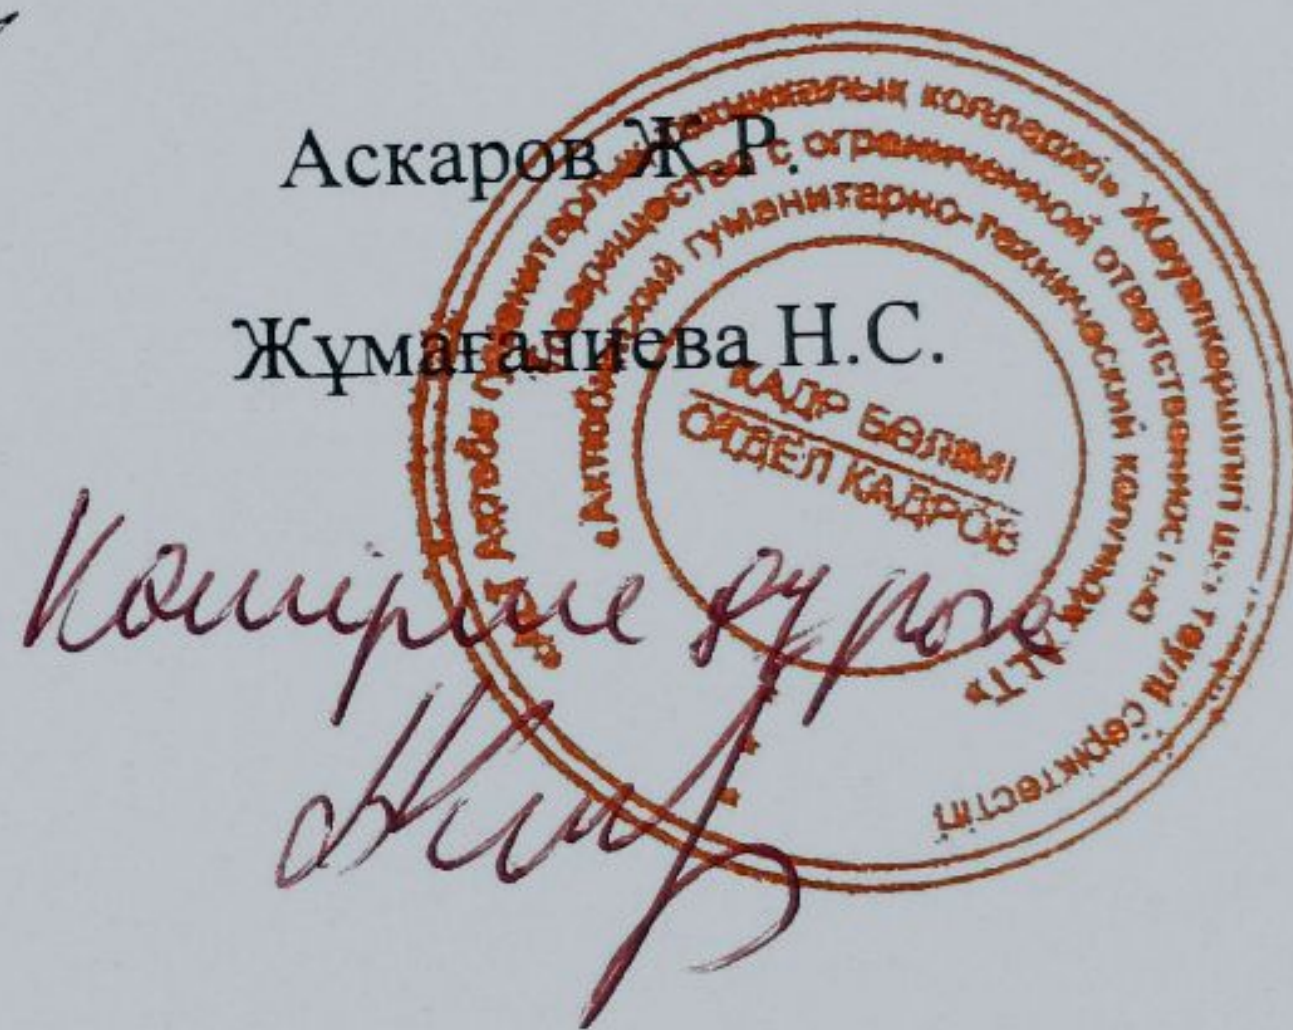 Аскаров Ж.Р.
Жұмағалиева Н.С.
Көшірме дұрыс
гуманитарлық-техникалық колледжі» Жауапкершілігі шектеулі серіктестігі
Товарищество с ограниченной ответственностью
«Актюбинский гуманитарно-технический колледж
КАДР БӨЛІМІ
ОТДЕЛ КАДРОВ